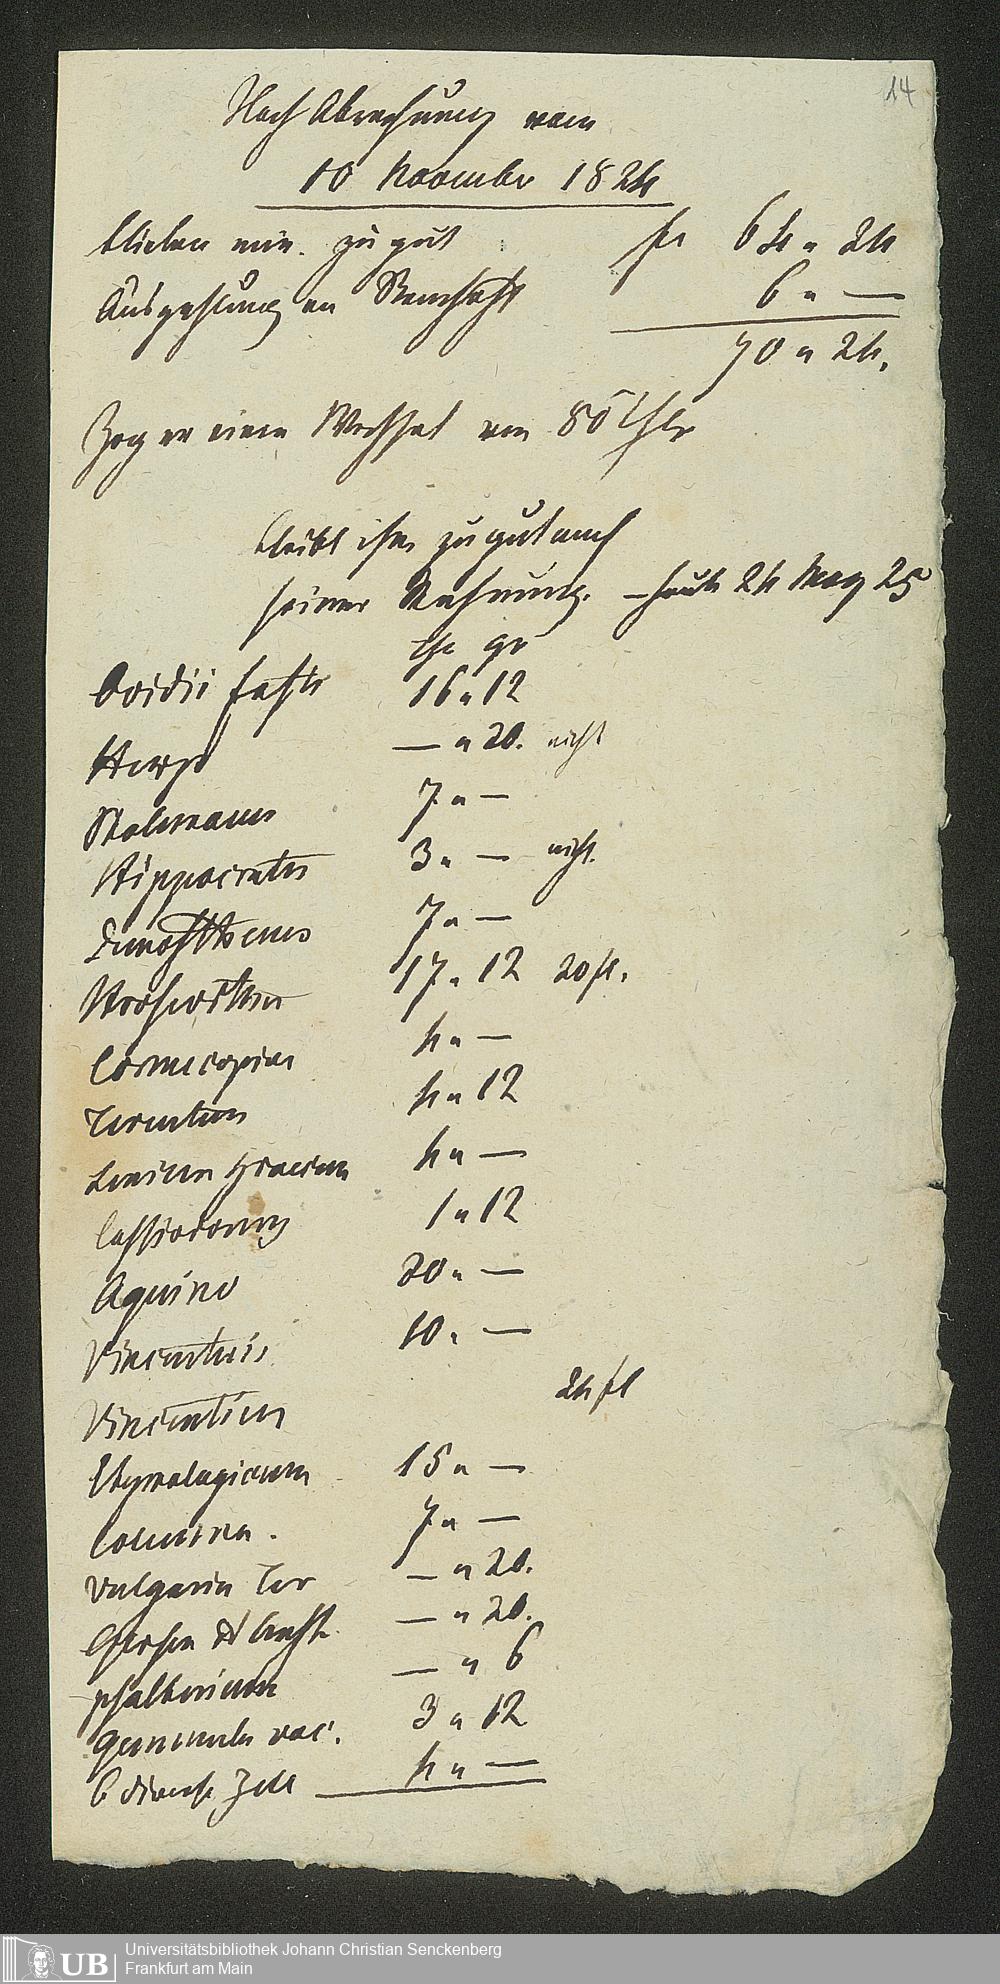 14
Nach Abrechnung vom
10 November 1824
blieben mir zu gut fl 64 " 24
Auszahlung an 6 " —
70 " 24.
Zog er einen Wechsel von 80 Thlr
bleibt ihm zu gut auch
seiner Rechnung. — heute 24 May 25
Thr gr
Ovidii fasti 16 " 12
— " 20. nicht
7 " —
Hippocrates 3 " — nicht.
Demosthenes 7 " —
17 " 12 20 fl.
Cornucopiae 4 " —
Terentius 4 " 12
4 " —
Cassiodorus 1 " 12
Aquino 20 " —
Vincentius 10 " —
Vincentius 24 fl
Etymologicum 15 " —
Columna. 7 " —
Vulgaria Ter — " 20.
Gerson — " 20.
psalterium — " 6
Gemmula voc. 3 " 12
6 diverse Zell 4 " —
UB Universitätsbibliothek Johann Christian Senckenberg
Frankfurt am Main